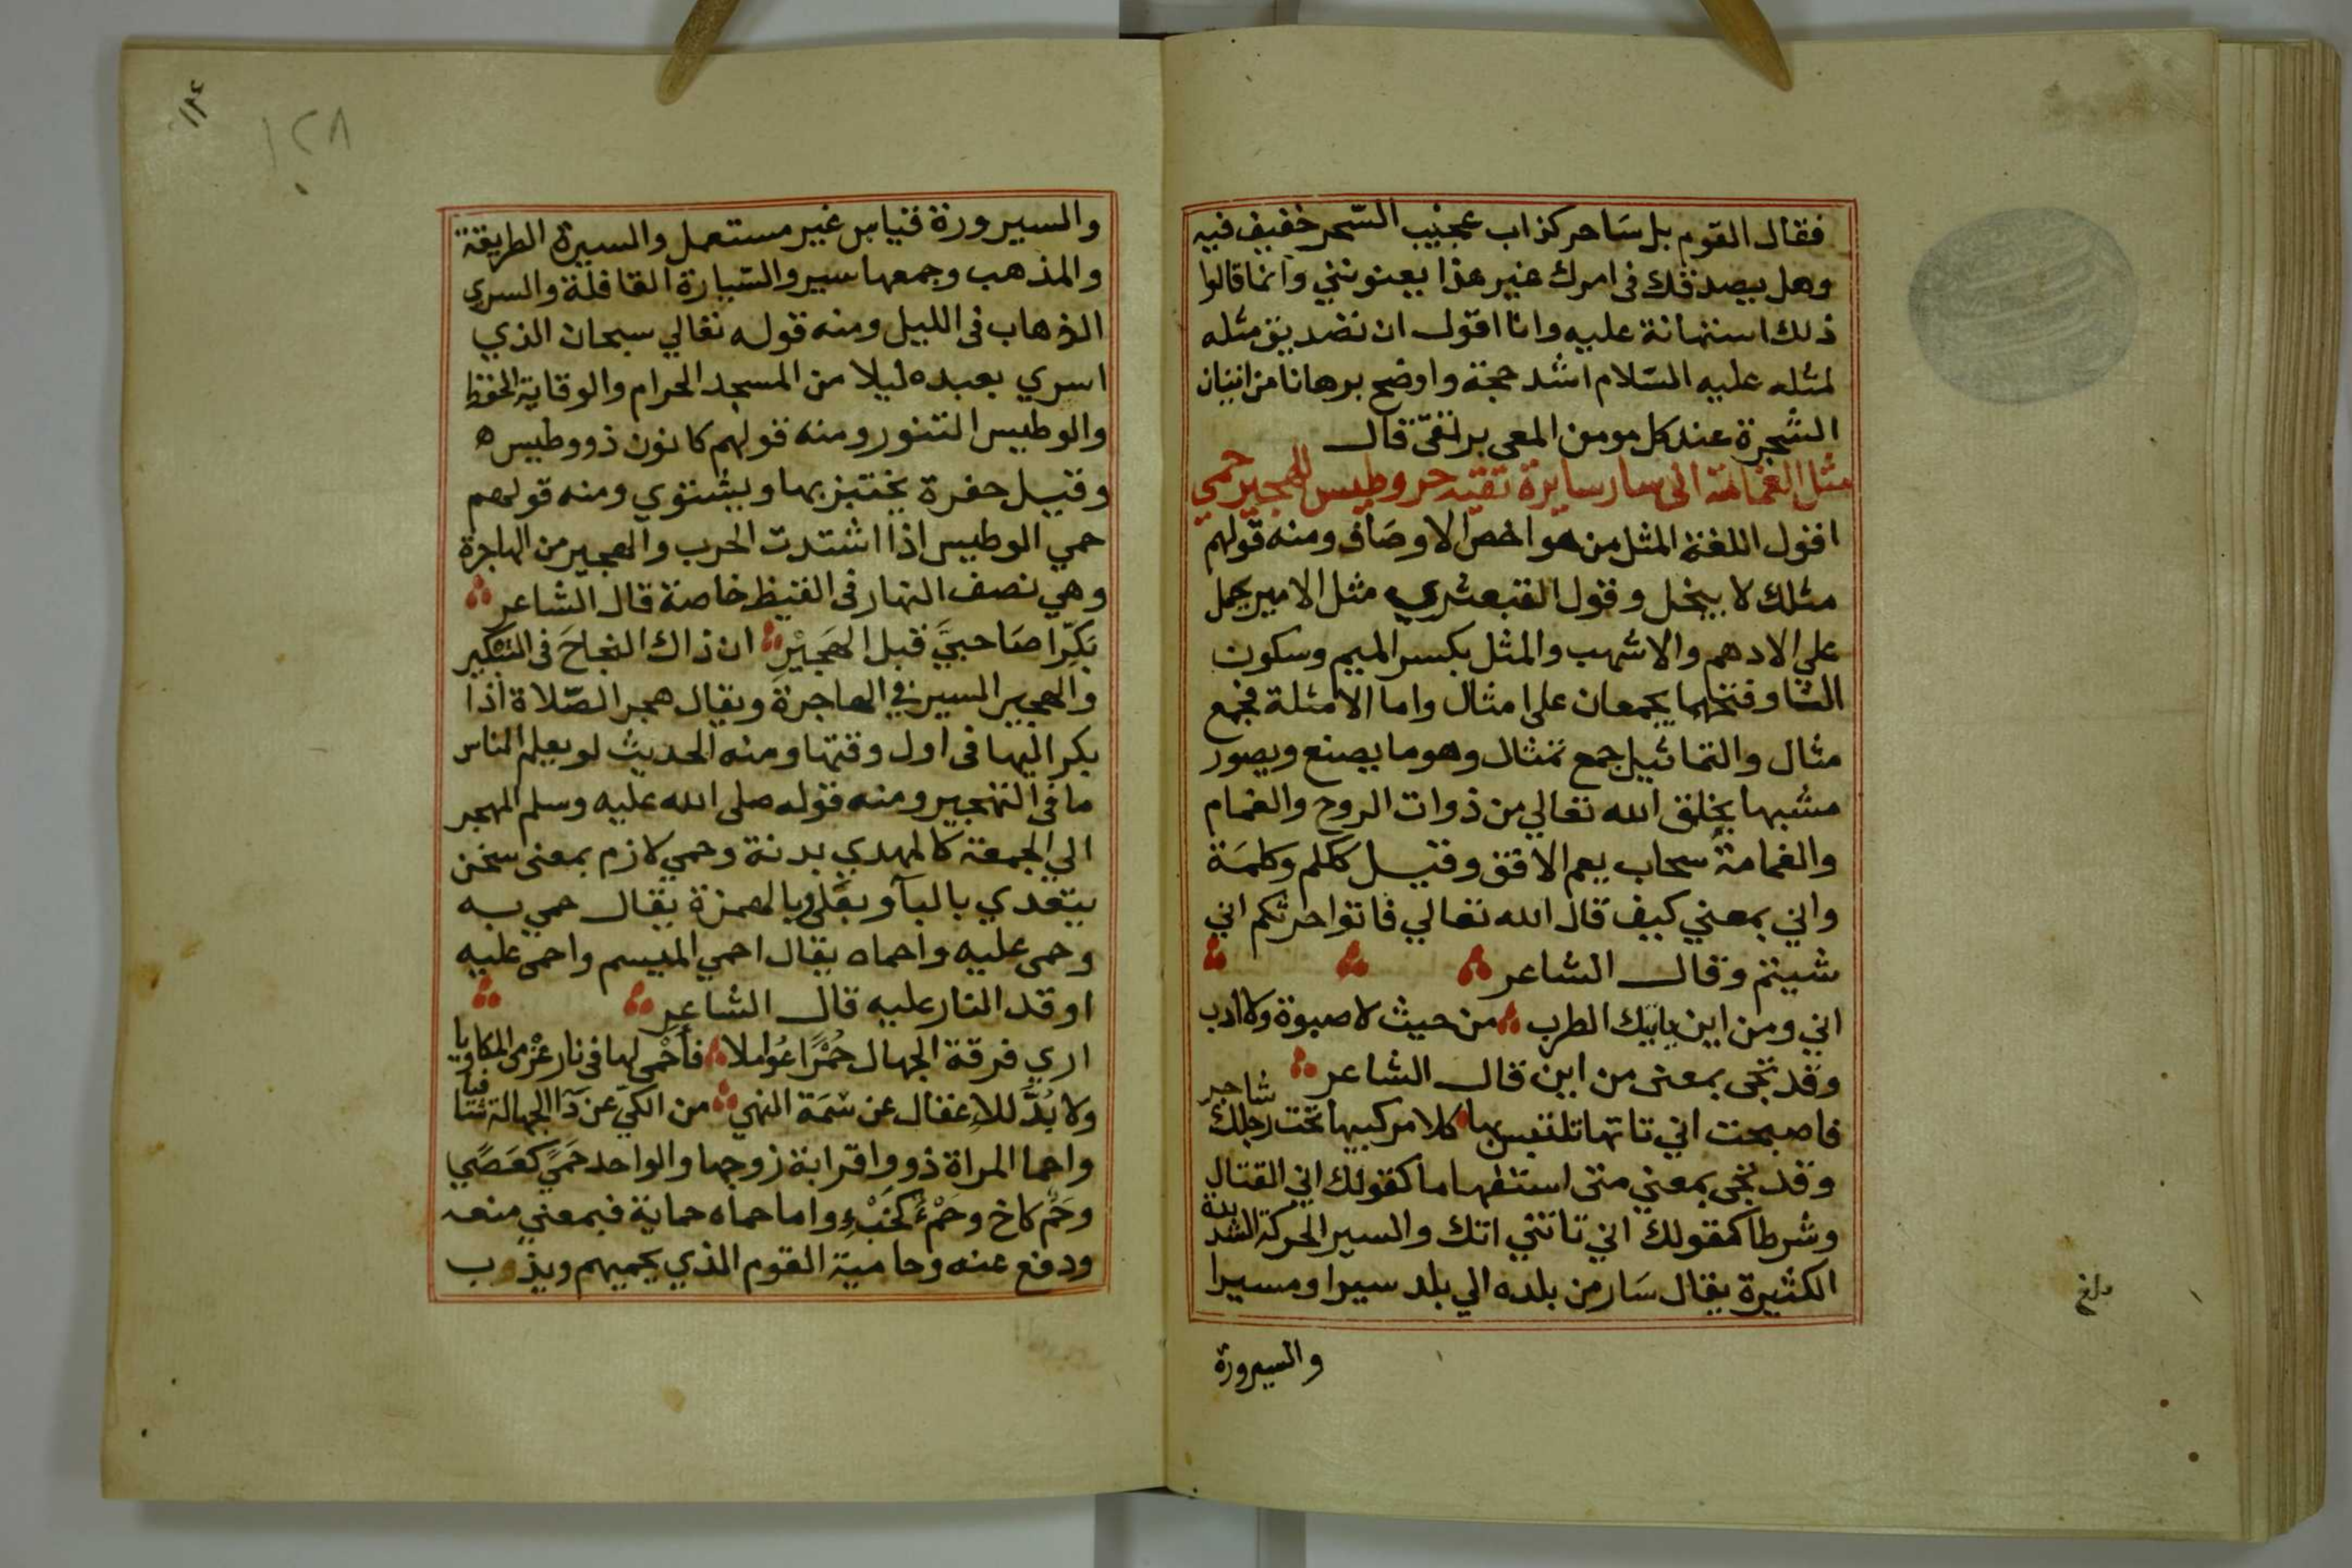 فقال القوم بل ساحر كذاب عجيب السّحر خفيف فيه
وهل يصدقك فى امرك غير هذا يعنونني وانما قالوا
ذلك استهانة عليه وانا اقول ان تصديق مثله
لمثله عليه السّلام اشد حجة واوضح برهانا من اتيان
الشجرة عند كل مومن المعى بر تقىّ قال
مثل الغمامة انى سار سايرة تقيه حر وطيس للهجير حمي
اقول اللغة المثل من هو اخص الاوصاف ومنه قولهم
مثلك لا يبخل وقول القبعثري مثل الامير يحمل
على الادهم والاشهب والمثل بكسر الميم وسكون
الثا وفتحهما يجمعان على امثال واما الامثلة فجمع
مثال والتماثيل جمع تمثال وهو ما يصنع ويصور
مشبها بخلق الله تعالي من ذوات الروح والغمام
والغمامة سحاب يعم الافق وقيل ككلم وكلمة
واني بمعني كيف قال الله تعالي فاتوا حرثكم اني
شيتم وقال الشاعر
اني ومن اين يابيك الطرب من حيث لا صبوة ولا ادب
وقد تجى بمعنى من اين قال الشاعر
فاصبحت اني تاتها تلتبس بها كلا مركبيها تحت رجلك شاجر
وقد تجى بمعني متى استفهاما كقولك اني القتال
وشرطا كقولك اني تاتني اتك والسير الحركة الشديدة
الكثيرة يقال سَار من بلده الي بلد سيرا ومسيرا
والسيرورة
بلغ
١٢٨
والسيرورة قياس غير مستعمل والسيرة الطريقة
والمذهب وجمعها سير والسّيارة القافلة والسري
الذهاب فى الليل ومنه قوله تعالي سبحان الذي
اسري بعبده ليلا من المسجد الحرام والوقاية الحفظ
والوطيس التنور ومنه قولهم كانون ذو وطيس ه
وقيل حفرة يختبز بها ويشتوي ومنه قولهم
حمي الوطيس اذا اشتدت الحرب والهجير من الهاجرة
وهي نصف النهار فى القيظ خاصة قال الشاعر
بَكِّرا صَاحبيَّ قبل الهَجِيْرِ ان ذاك النجاحَ فى التبكير
والهجير السير في الهاجرة ويقال هجر الصّلاة اذا
بكر اليها فى اول وقتها ومنه الحديث لو يعلم الناس
ما فى التهجير ومنه قوله صلى الله عليه وسلم المهجر
الي الجمعة كالمهدي بدنة وحمي لازم بمعنى سخن
يتعدي بالبآ وبعلى وبالهمزة يقال حمي به
وحمى عليه واحماه يقال احمي الميسم واحمى عليه
اوقد النار عليه قال الشاعر
اري فرقة الجهال حُمْرًا عُواملا فأَحْمى لها فى نار عَزْمى المكاويا
ولا بُدَّ للاِغفال عن سمَة النهي من الكيّ عن دآ الجهالة شافيا
واحما المراة ذووا قرابة زوجها والواحد حَمًي كعَصًي
وحَمٌ كاخ وحَمْءٌ كخَبْءٍ واما حماه حماية فبمعني منعه
ودفع عنه وحامية القوم الذي يحميهم ويذوب